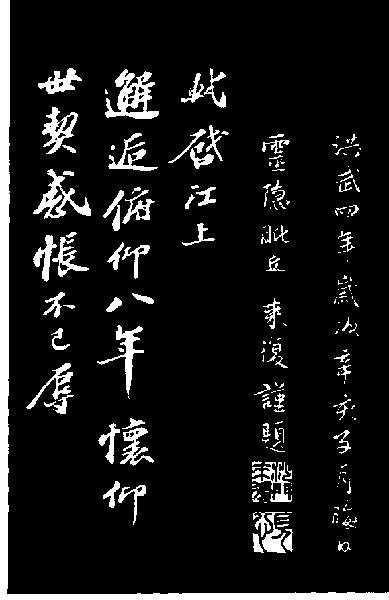 洪武四年歲次辛亥子月晦日
靈隱丘來復謹題
此啓江上
邂逅俯仰八年懷仰
世契感悵不已辱